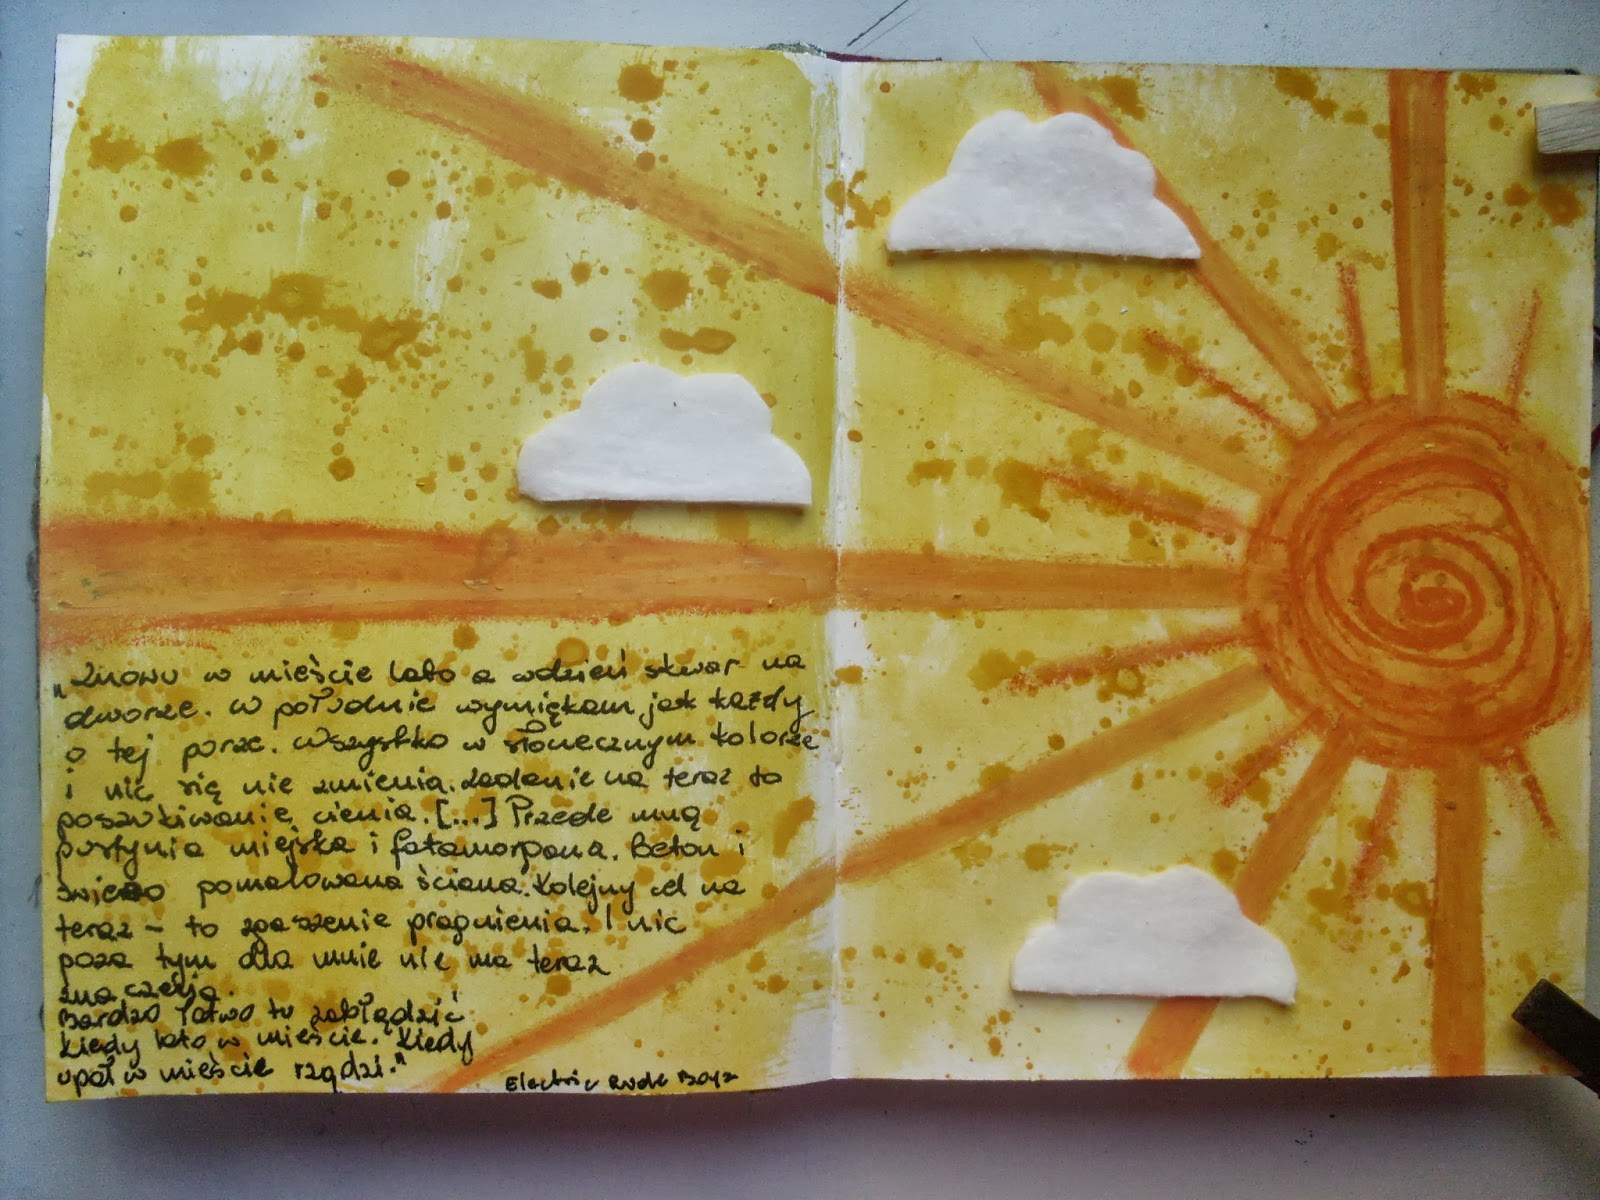 „Znowu w mieście lato a wdzień skwar na
dworze. W południe wymiękam jak każdy
o tej porze. Wszystko w słonecznym kolorze
i nic się nie zmienia. Zadanie na teraz to
poszukiwanie cienia. [...] Przede mną
pustynia miejska i fatamorgana. Beton i
świeżo pomalowana ściana. Kolejny cel na
teraz – to zgaszenie pragnienia. I nic
poza tym dla mnie nie ma teraz
znaczenia.
Bardzo łatwo tu zabłądzić
kiedy lato w mieście. Kiedy
upał w mieście rządzi."
Electric Rude Boyz